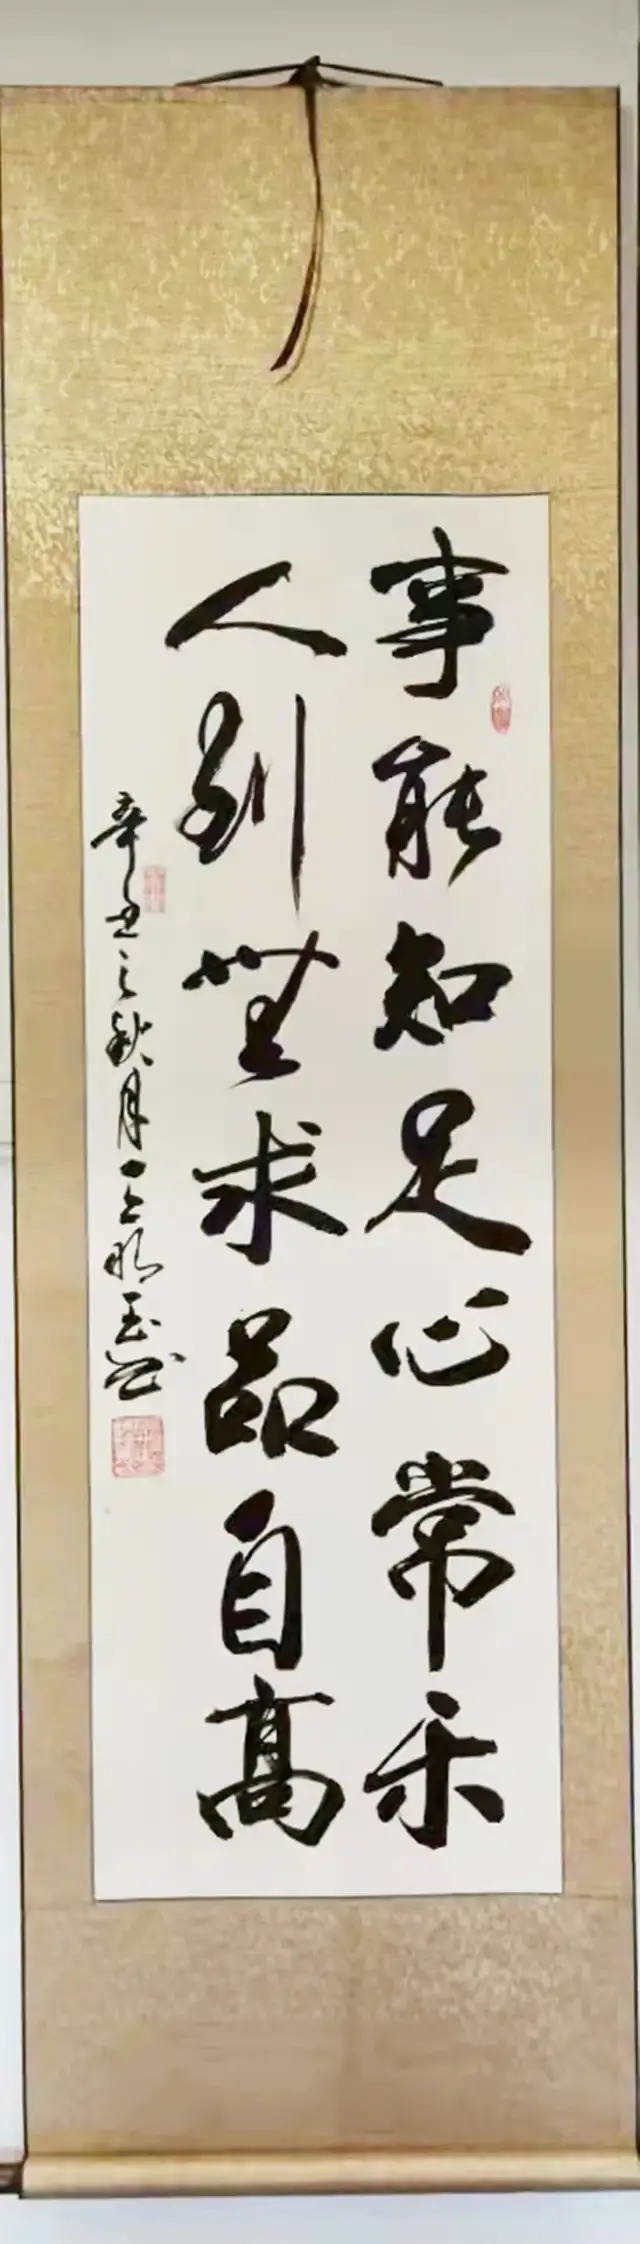 事能知足心常乐
人到無求品自高
辛丑之秋月